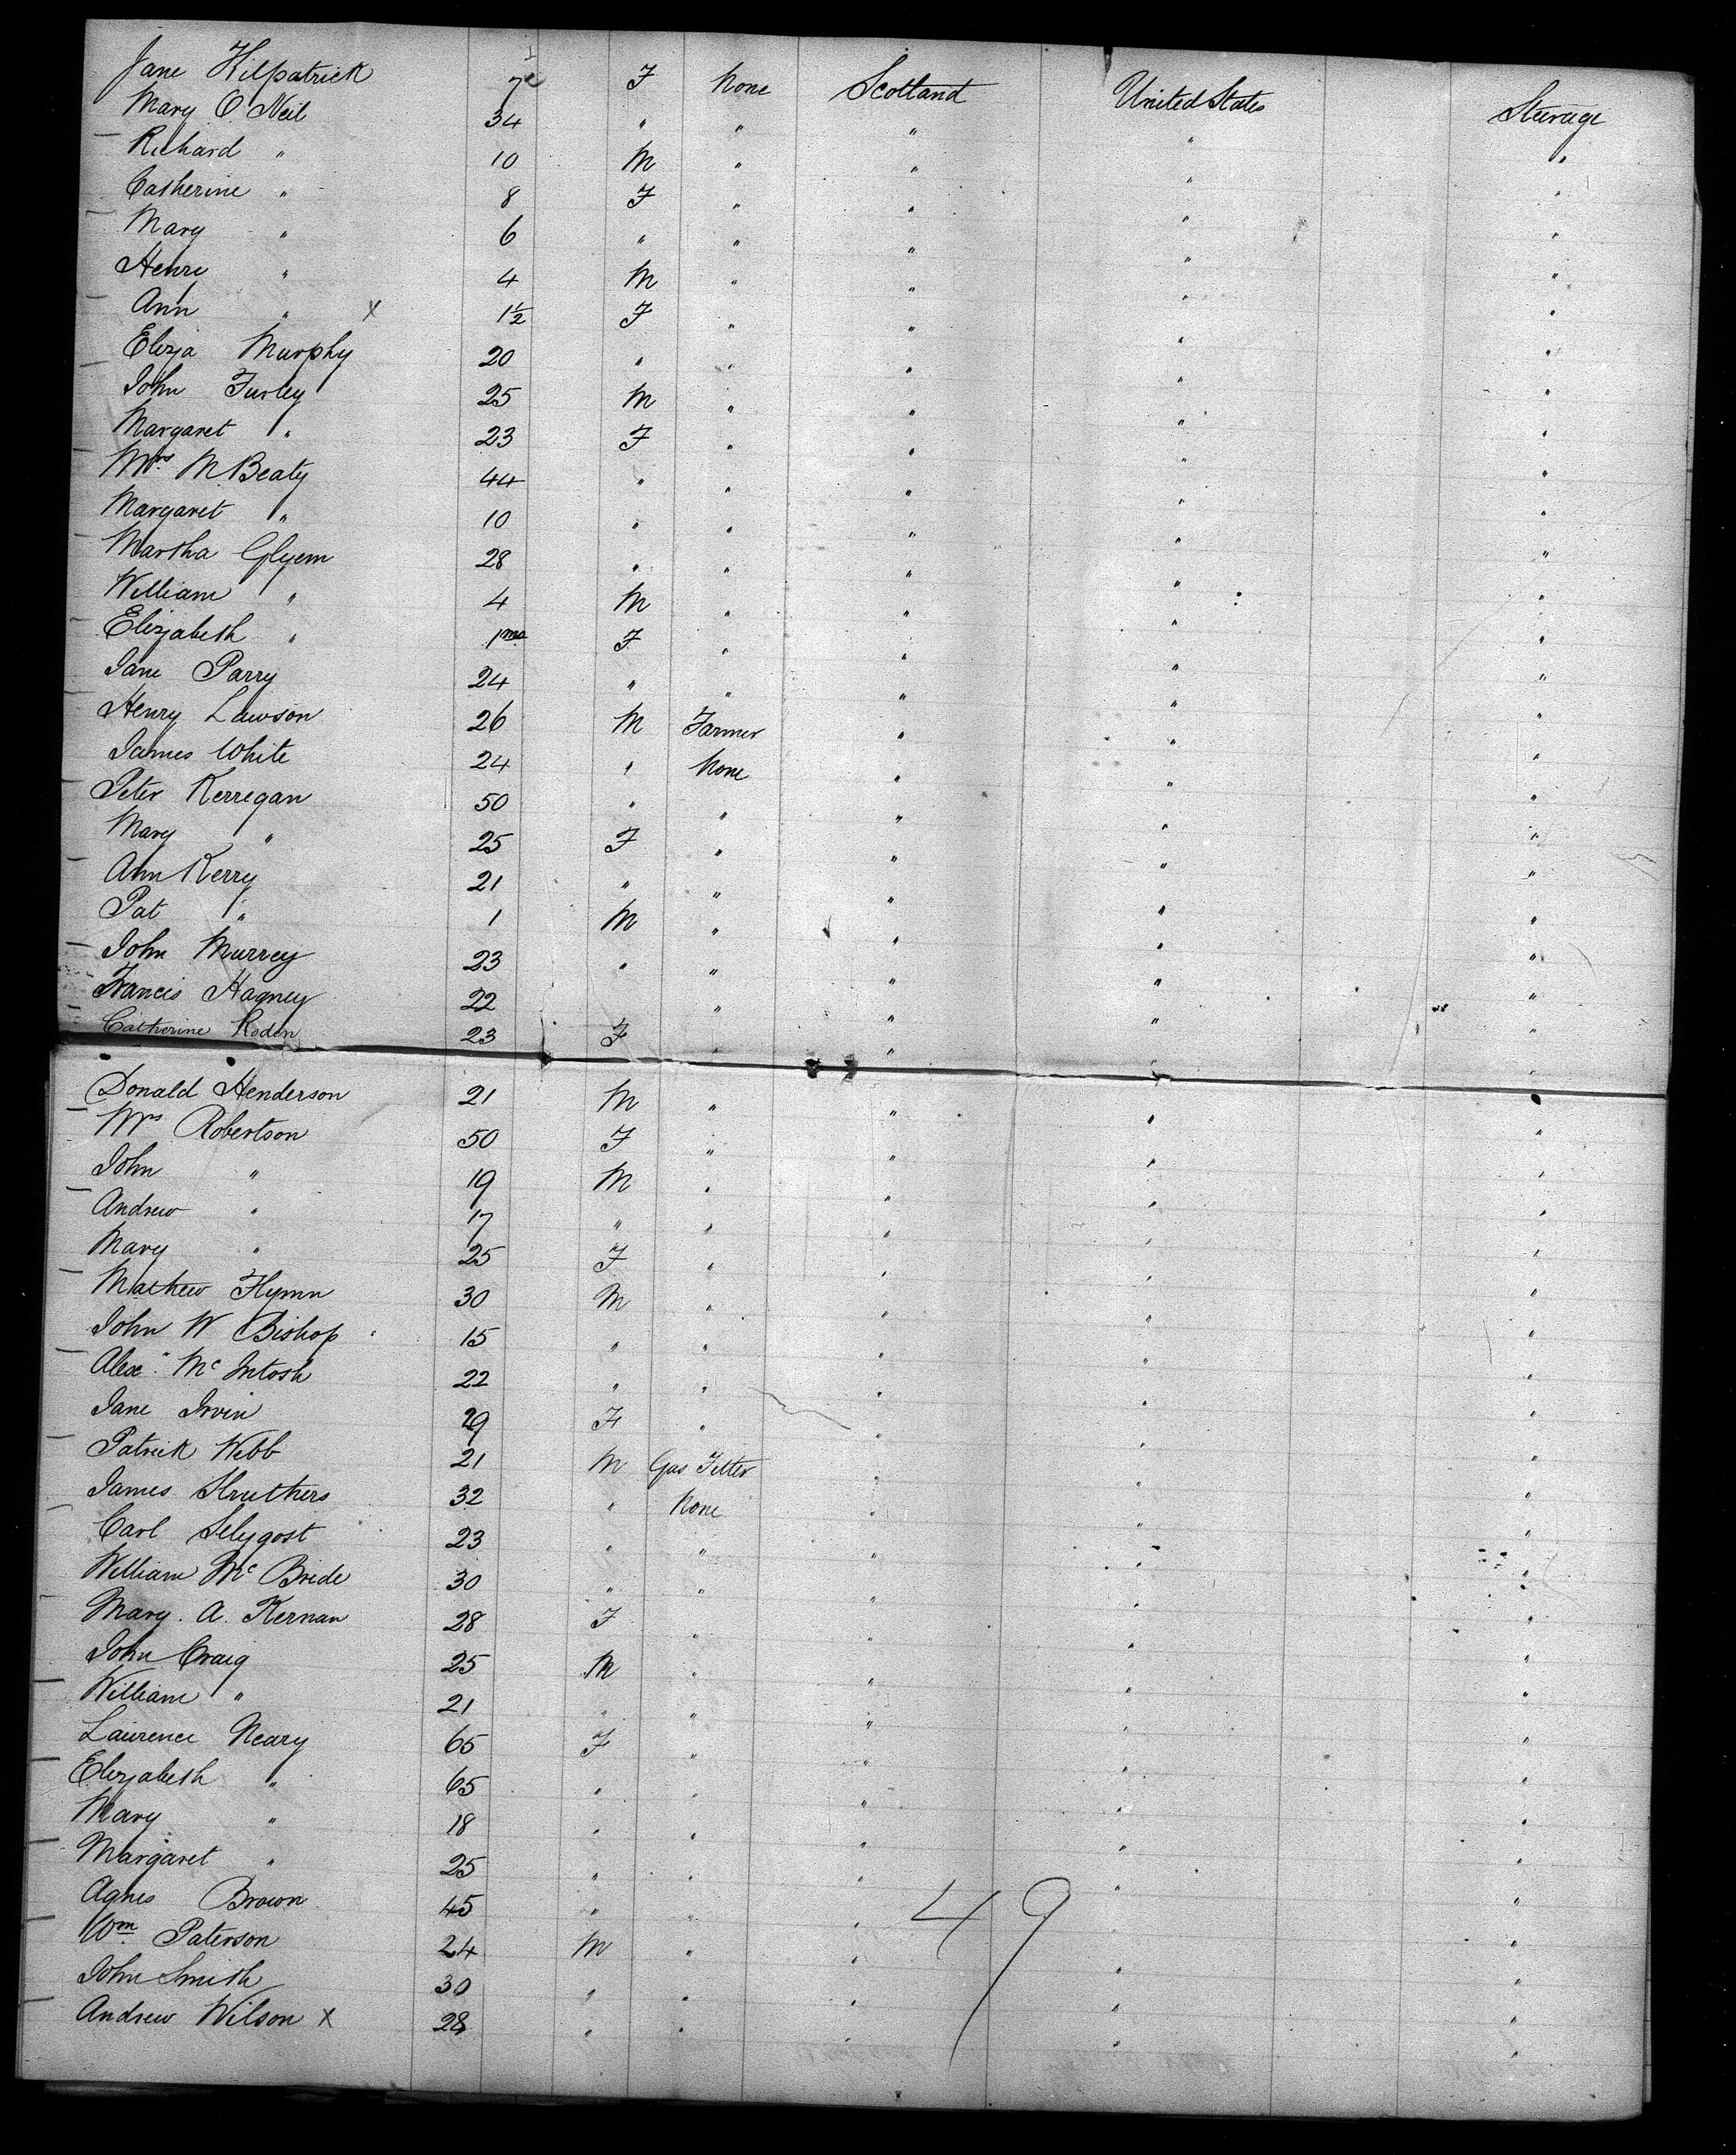 Jane Kilpatrick 7 F None Scotland United States Steerage
Mary O. Neil 34 " " " " "
Richard " 10 M " " " "
Catherine " 8 F " " " "
Mary " 6 " " " " "
Henry " 4 M " " " "
Ann " x 1½ F " " " "
Eliza Murphy 20 " " " " "
John Furley 25 M " " " "
Margaret " 23 F " " " "
Mrs. M. Beaty 44 " " " " "
Margaret " 10 " " " " "
Martha Glyem 28 " " " " "
William " 4 M " " " "
Elizabeth " 1mo F " " " "
Jane Parry 24 " " " " "
Henry Lawson 26 M Farmer " " "
James White 24 " None " " "
Peter Kerregan 50 " " " " "
Mary " 25 F " " " "
Ann Kerry 21 " " " " "
Pat " 1 M " " " "
John Murrey 23 " " " " "
Francis Hagney 22 " " " "
Catherine Roden 23 F " " " "
Donald Henderson 21 M " " " "
Mrs Robertson 50 F " " " "
John " 19 M " " " "
Andrew " 17 " " " " "
Mary " 25 F " " " "
Mathew Flymn 30 M " " " "
John W Bishop 15 " " " " "
Alex" Mc Intosh 22 " " " " "
Jane Irvin 29 F " " " "
Patrick Webb 21 M Gas Fitter " " "
James Struthers 32 " None " " "
Carl 23 " " " " "
William Mc Bride 30 " " " " "
Mary. A. Kernan 28 F " " " "
John Craig 25 M " " " "
William " 21 " " " " "
Laurence Neary 65 F " " " "
Elizabeth " 65 " " " " "
Mary " 18 " " " " "
Margaret " 25 " " " " "
Agnes Brown 45 " " " " "
Wm. Paterson 24 M " " " "
John Smith 30 " " " " "
Andrew Wilson x 28 " " " " "
49